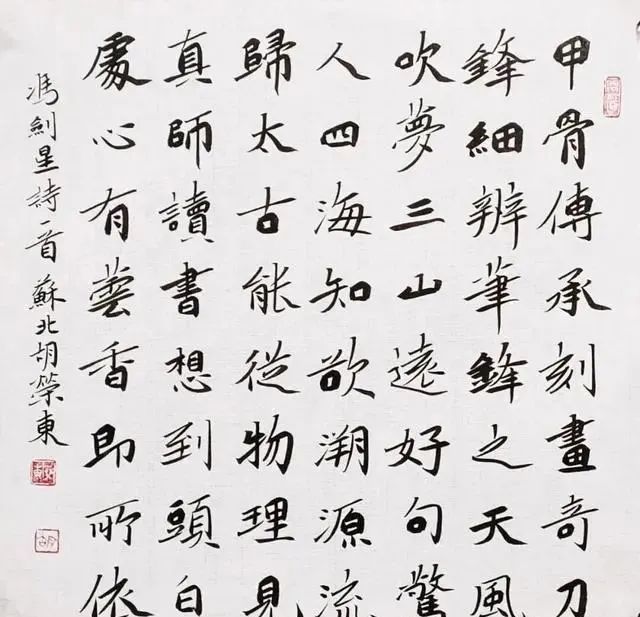 甲骨傳承刻畫奇刀
鋒細辨筆鋒之天風
吹夢三山遠好句驚
人四海知欲溯源流
歸太古能從物理見
真師讀書想到頭白
處心有蕓香即所依
馮劍星詩一首 蘇北胡榮東
胡